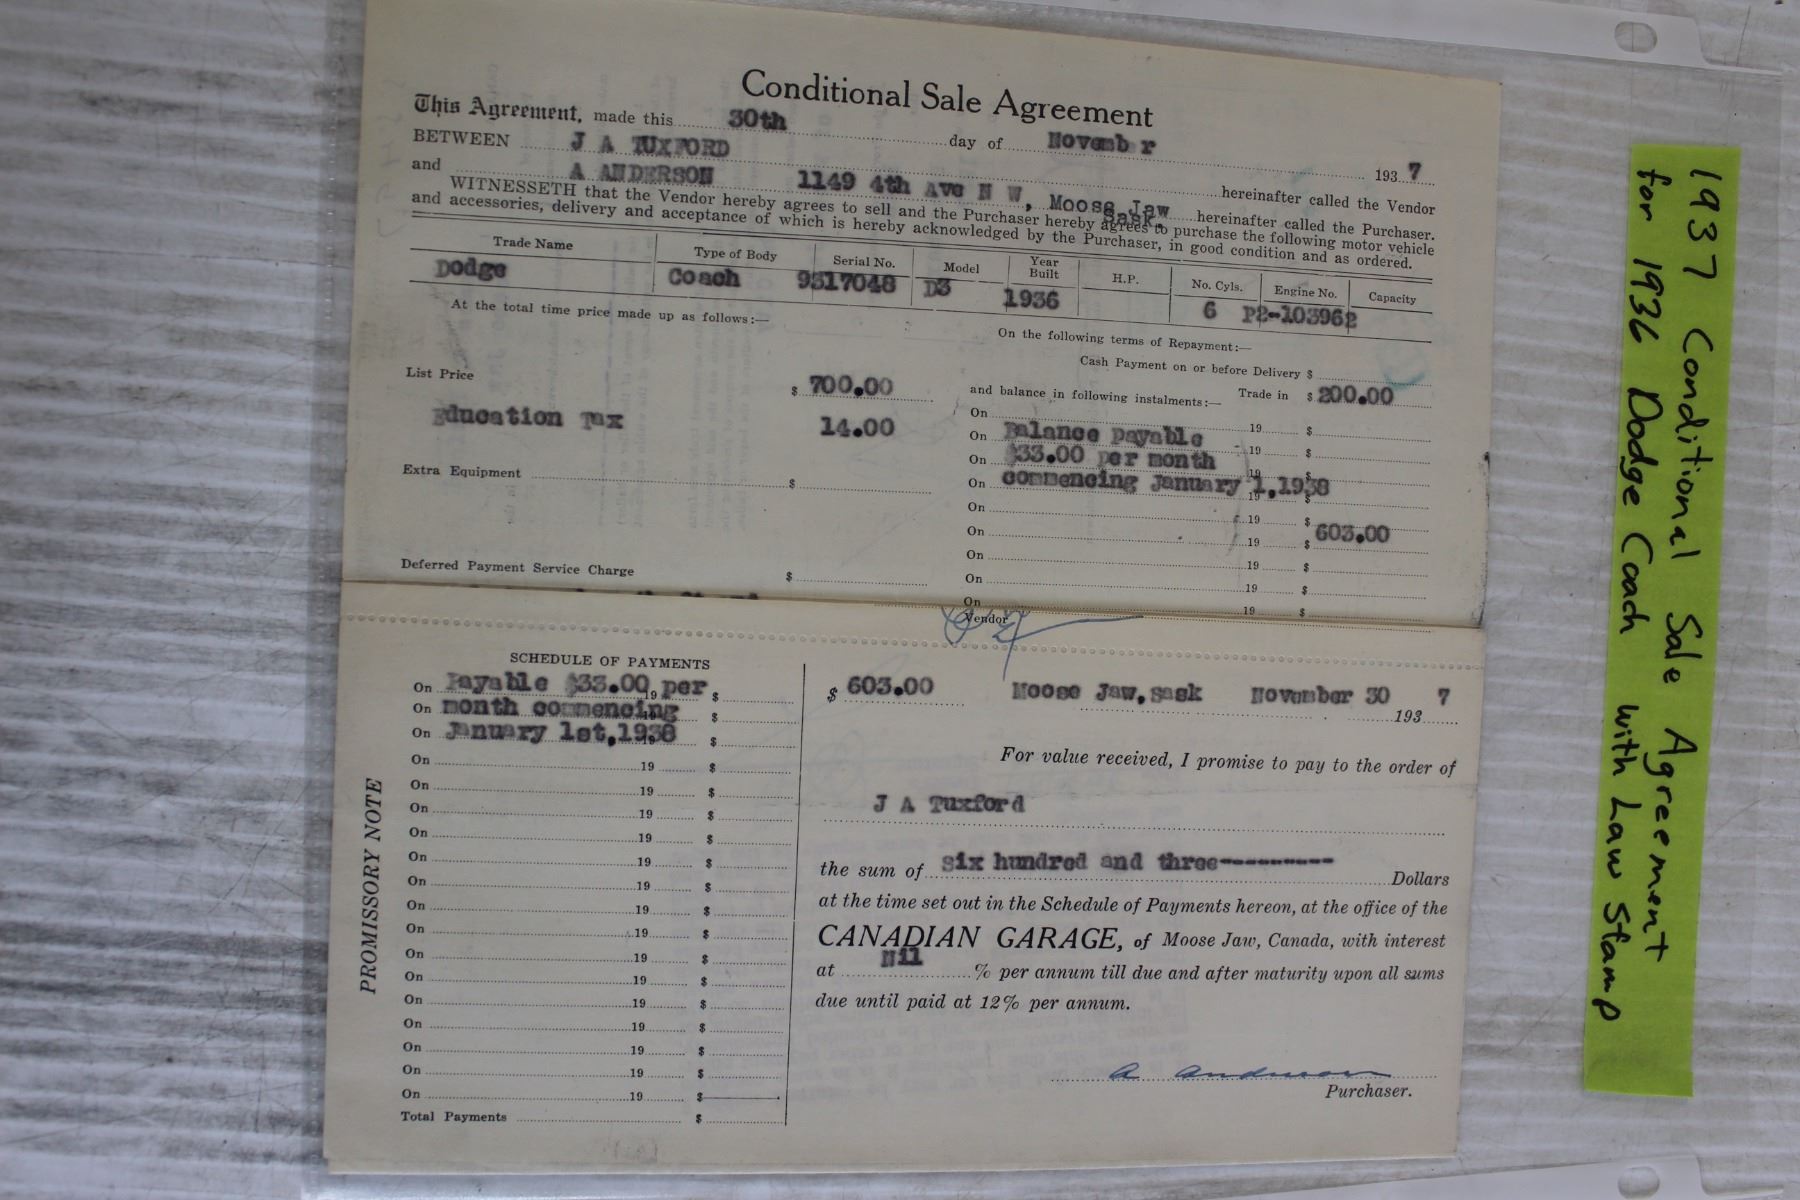 Conditional Sale Agreement
This Agreement, made this 30th day of Novemb r 193 7
BETWEEN J A TUXFORD hereinafter called the Vendor
and A ANDERSON 1149 4th Ave N W, Moose Jaw Sask. hereinafter called the Purchaser.
WITNESSETH that the Vendor hereby agrees to sell and the Purchaser hereby agrees to purchase the following motor vehicle
and accessories, delivery and acceptance of which is hereby acknowledged by the Purchaser, in good condition and as ordered.
Trade Name Type of Body Serial No. Model Year Built H.P. No. Cyls. Engine No. Capacity
Dodge Coach 9517048 D3 1936 6 P2-103962
At the total time price made up as follows:—
On the following terms of Repayment:—
Cash Payment on or before Delivery $
List Price $ 700.00
and balance in following instalments:— Trade in $ 200.00
Education Tax 14.00
On 19 $
On Balance payable 19 $
On $33.00 per month 19 $
On commencing January 1,1938 19 $
Extra Equipment $
On 19 $
On 19 $ 603.00
On 19 $
On 19 $
On 19 $
Deferred Payment Service Charge $
Vendor
SCHEDULE OF PAYMENTS
On Payable $33.00 per 19 $
On month commencing $
On January 1st,1938 $
On 19 $
On 19 $
On 19 $
On 19 $
On 19 $
On 19 $
On 19 $
On 19 $
On 19 $
On 19 $
On 19 $
On 19 $
On 19 $
On 19 $
On 19 $
Total Payments $
PROMISSORY NOTE
$ 603.00 Moose Jaw, Sask November 30 193 7
For value received, I promise to pay to the order of
J A Tuxford
the sum of six hundred and three--------- Dollars
at the time set out in the Schedule of Payments hereon, at the office of the
CANADIAN GARAGE, of Moose Jaw, Canada, with interest
at Nil % per annum till due and after maturity upon all sums
due until paid at 12% per annum.
A Anderson
Purchaser.
1937 Conditional Sale Agreement
for 1936 Dodge Coach with Law Stamp